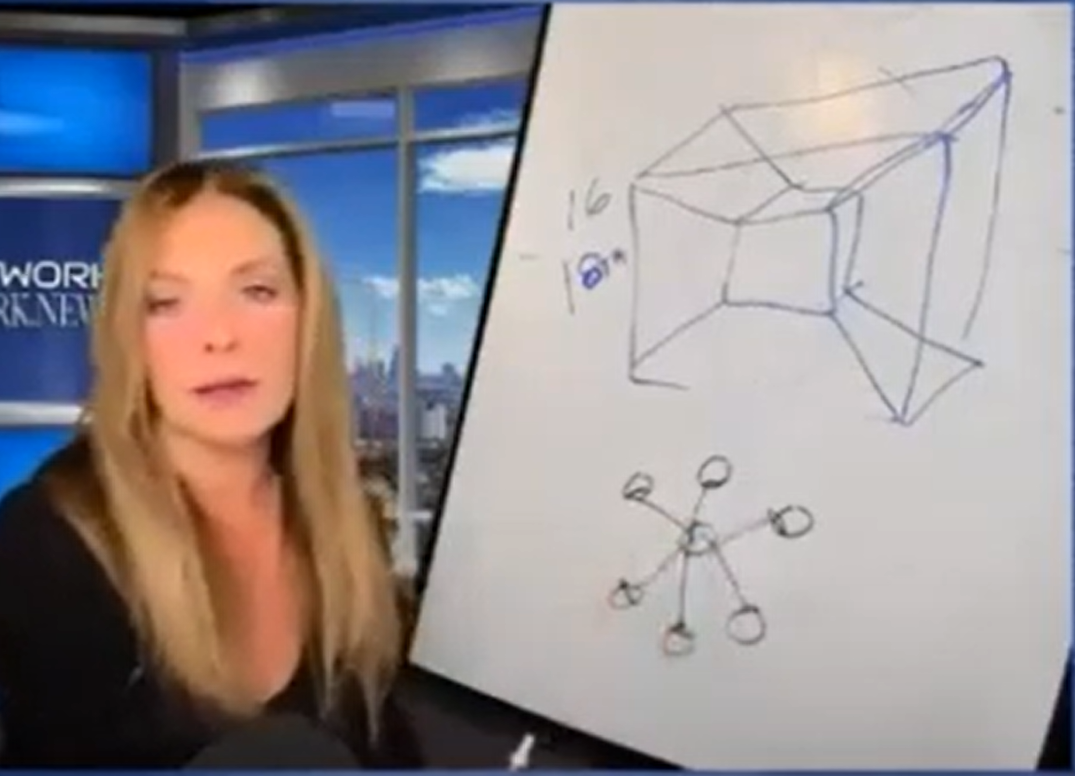 WORK
RK.NEW
16
18in